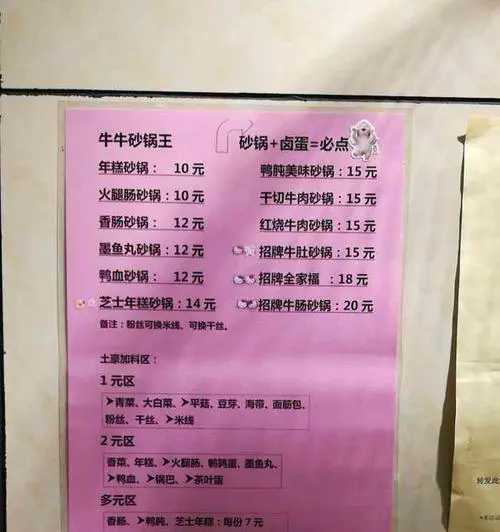 牛牛砂锅王
砂锅+卤蛋=必点
年糕砂锅：10 元
鸭肫美味砂锅：15 元
火腿肠砂锅：10 元
干切牛肉砂锅：15 元
香肠砂锅：12 元
红烧牛肉砂锅：15 元
墨鱼丸砂锅：12 元
招牌牛肚砂锅：15 元
鸭血砂锅：12 元
招牌全家福：18 元
芝士年糕砂锅：14 元
招牌牛肠砂锅：20 元
备注：粉丝可换米线、可换干丝。
土豪加料区：
1 元区
➤青菜、大白菜、➤平菇、豆芽、海带、面筋包、
粉丝、干丝、➤米线
2 元区
香菜、年糕、➤火腿肠、鹌鹑蛋、墨鱼丸、
➤鸭血、➤锅巴、➤茶叶蛋
多元区
香肠、➤鸭肫、芝士年糕：每份 7 元
转发此